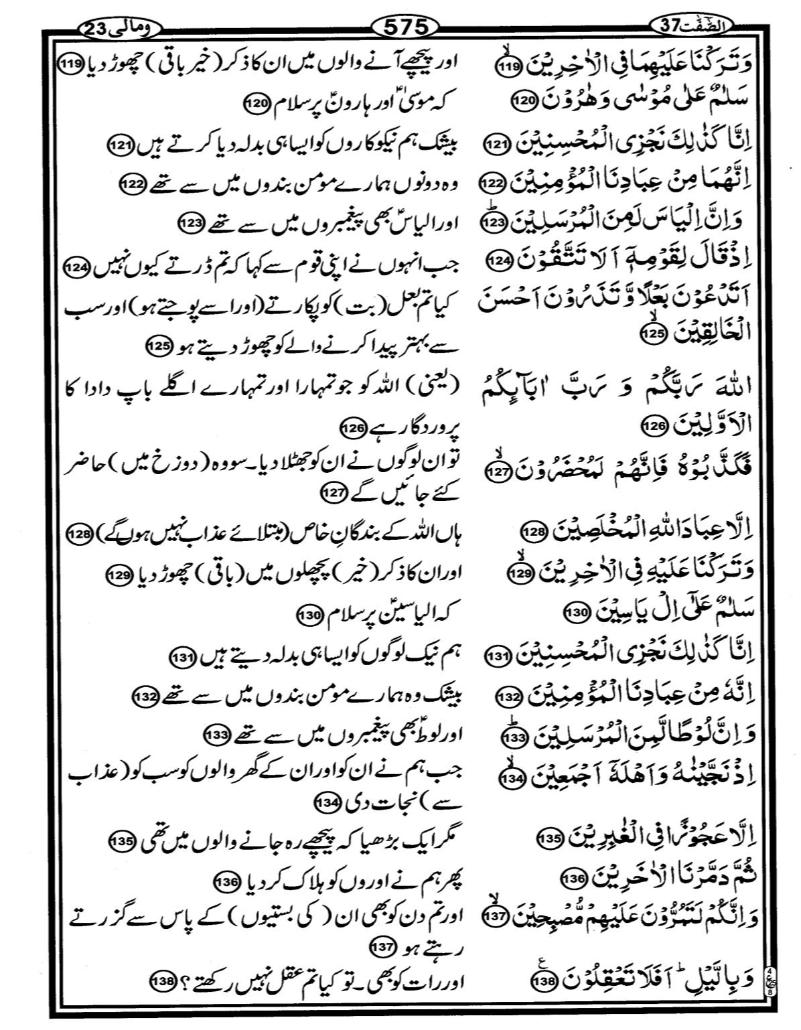 الصّٰفّٰت 37
575
ومالی 23
وَتَرَكْنَا عَلَيْهِمَا فِى الْاٰخِرِيْنَ ۙ 119
اور پیچھے آنے والوں میں ان کا ذکر (خیر باقی) چھوڑ دیا 119
سَلٰمٌ عَلٰى مُوْسٰى وَهٰرُوْنَ 120
کہ موسیٰؑ اور ہارونؑ پر سلام 120
اِنَّا كَذٰلِكَ نَجْزِى الْمُحْسِنِيْنَ 121
بیشک ہم نیکوکاروں کو ایسا ہی بدلہ دیا کرتے ہیں 121
اِنَّهُمَا مِنْ عِبَادِنَا الْمُؤْمِنِيْنَ 122
وہ دونوں ہمارے مومن بندوں میں سے تھے 122
وَاِنَّ اِلْيَاسَ لَمِنَ الْمُرْسَلِيْنَ ؕ 123
اور الیاسؑ بھی پیغمبروں میں سے تھے 123
اِذْقَالَ لِقَوْمِهٖۤ اَلَا تَتَّقُوْنَ 124
جب انہوں نے اپنی قوم سے کہا کہ تم ڈرتے کیوں نہیں 124
اَتَدْعُوْنَ بَعْلًا وَّتَذَرُوْنَ اَحْسَنَ
الْخَالِقِيْنَ ۙ 125
کیا تم بعل (بت) کو پکارتے (اور اسے پوجتے ہو) اور سب
سے بہتر پیدا کرنے والے کو چھوڑ دیتے ہو 125
اللّٰهَ رَبَّكُمْ وَ رَبَّ اٰبَآئِكُمُ
الْاَوَّلِيْنَ 126
(یعنی) اللہ کو جو تمہارا اور تمہارے اگلے باپ دادا کا
پروردگار ہے 126
فَكَذَّبُوْهُ فَاِنَّهُمْ لَمُحْضَرُوْنَ ۙ 127
تو ان لوگوں نے ان کو جھٹلا دیا۔ سو وہ (دوزخ میں) حاضر
کئے جائیں گے 127
اِلَّا عِبَادَ اللّٰهِ الْمُخْلَصِيْنَ 128
ہاں اللہ کے بندگانِ خاص (مبتلائے عذاب نہیں ہوں گے) 128
وَتَرَكْنَا عَلَيْهِ فِى الْاٰخِرِيْنَ ۙ 129
اور ان کا ذکر (خیر) پچھلوں میں (باقی) چھوڑ دیا 129
سَلٰمٌ عَلٰٓى اِلْ يَاسِيْنَ 130
کہ الیاسینؑ پر سلام 130
اِنَّا كَذٰلِكَ نَجْزِى الْمُحْسِنِيْنَ 131
ہم نیک لوگوں کو ایسا ہی بدلہ دیتے ہیں 131
اِنَّهٗ مِنْ عِبَادِنَا الْمُؤْمِنِيْنَ 132
بیشک وہ ہمارے مومن بندوں میں سے تھے 132
وَاِنَّ لُوْطًا لَّمِنَ الْمُرْسَلِيْنَ ؕ 133
اور لوطؑ بھی پیغمبروں میں سے تھے 133
اِذْ نَجَّيْنٰهُ وَاَهْلَهٗۤ اَجْمَعِيْنَ ۙ 134
جب ہم نے ان کو اور ان کے گھر والوں کو سب کو (عذاب
سے) نجات دی 134
اِلَّا عَجُوْزًا فِى الْغٰبِرِيْنَ 135
مگر ایک بڑھیا کہ پیچھے رہ جانے والوں میں تھی 135
ثُمَّ دَمَّرْنَا الْاٰخَرِيْنَ 136
پھر ہم نے اوروں کو ہلاک کر دیا 136
وَاِنَّكُمْ لَتَمُرُّوْنَ عَلَيْهِمْ مُّصْبِحِيْنَ ۙ 137
اور تم دن کو بھی ان (کی بستیوں) کے پاس سے گزرتے
رہتے ہو 137
وَبِالَّيْلِ ؕ اَفَلَا تَعْقِلُوْنَ 138 ع
اور رات کو بھی۔ تو کیا تم عقل نہیں رکھتے؟ 138